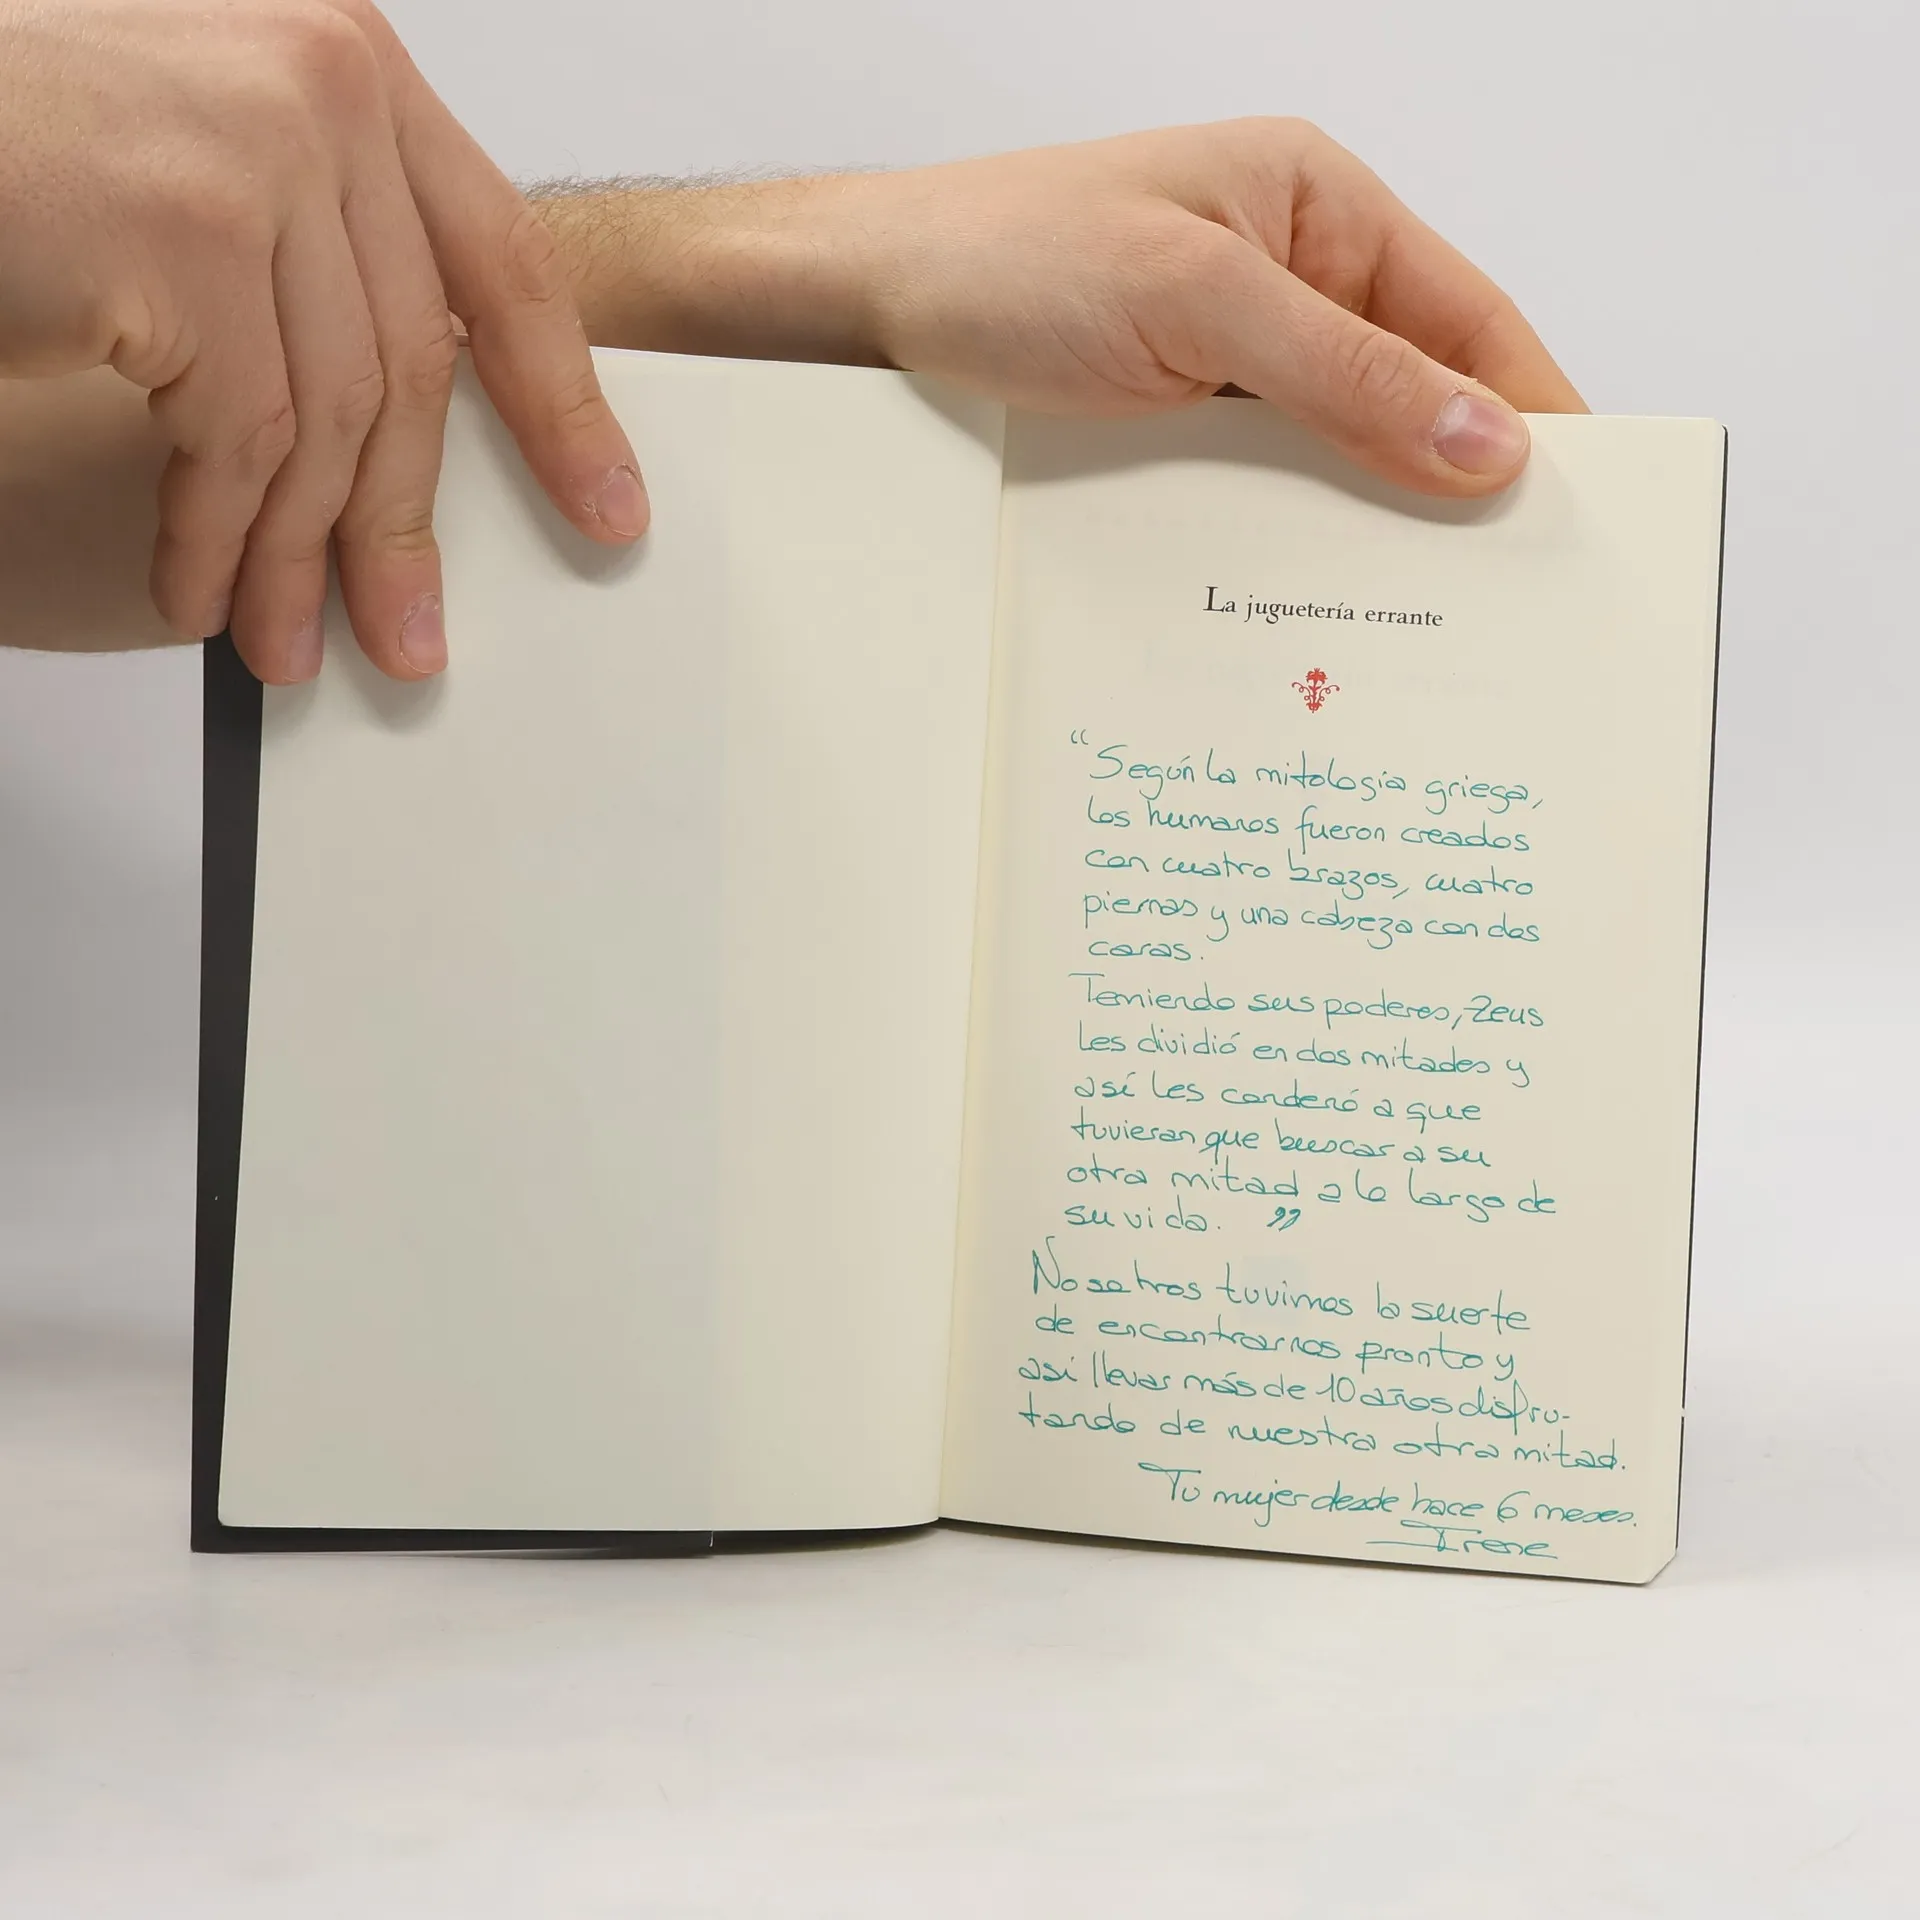 La juguetería errante
“Según la mitología griega,
los humanos fueron creados
con cuatro brazos, cuatro
piernas y una cabeza con dos
caras.
Temiendo sus poderes, Zeus
les dividió en dos mitades y
así les condenó a que
tuvieran que buscar a su
otra mitad a lo largo de
su vida. ”
Nosotros tuvimos la suerte
de encontrarnos pronto y
así llevar más de 10 años disfru-
tando de nuestra otra mitad.
Tu mujer desde hace 6 meses.
Irene